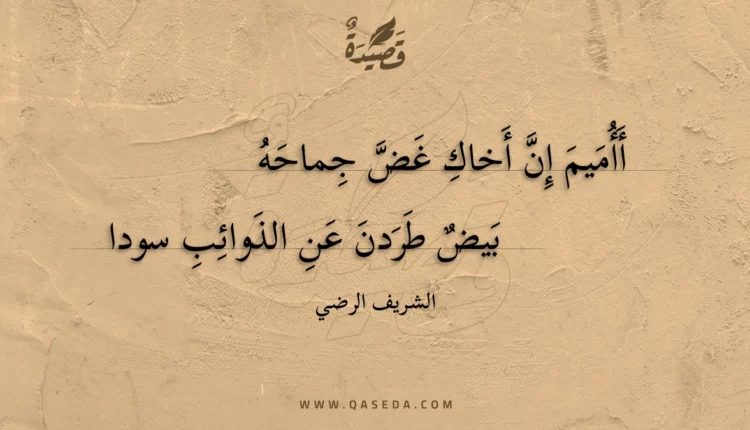 قَصِيدَةٌ
أَأُمَيمَ إِنَّ أَخاكِ غَضَّ جِماحَهُ
بَيضٌ طَرَدنَ عَنِ الذَوائِبِ سودا
الشريف الرضي
WWW.QASEDA.COM